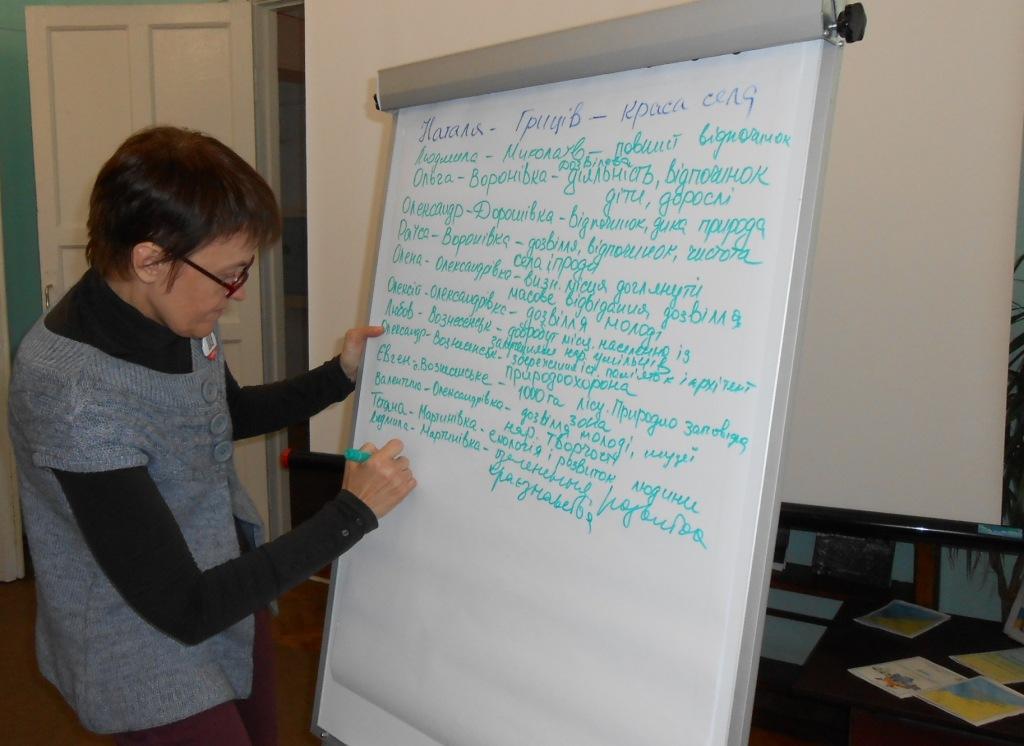 Наталя - Гриців - краса села
Людмила - Микола - повний відпочинок
дозвілєва
Ольга - Воронівка - діяльність, відпочинок
діти, дорослі
Олександр - Дорошівка - відпочинок, дика природа
Раїса - Воронівка - дозвілля, відпочинок, чистота
села і
Олена - Олександрівка - визн. місця доглянути
масове відвідання дозвілля
Олексій - Олександрівка - дозвілля молоді
Любов - Вознесенськ - добробут місц. населення із
нар. умільців
Олександр - Вознесенськ - збереження іст. пам'яток і архітект
Євген - Вознесенське - природоохорона
1000 га лісу. Природно заповідна
зона
Валентина - Олександрівка - дозвілля молоді, музеї
нар. творчості
Тетяна - Мартинівка - екологія і розвиток людини
Людмила - Мартинівка - озеленення, розвиток
краєзнавства